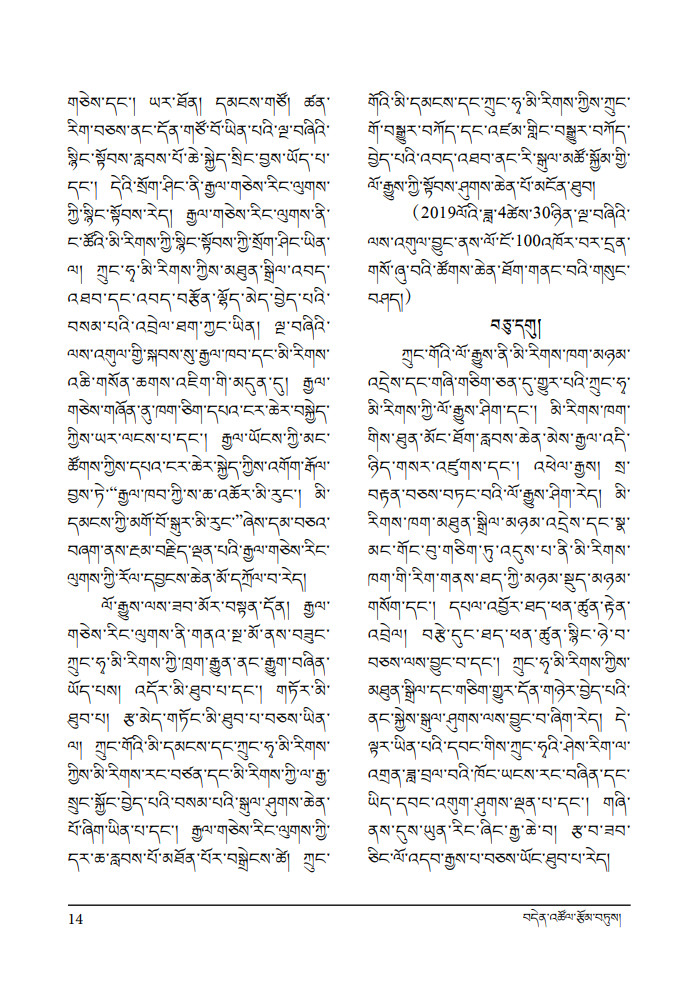 གཅེས་དང་། ཡར་ཐོན། དམངས་གཙོ། ཚན་
རིག་བཅས་ནང་དོན་གཙོ་བོ་ཡིན་པའི་ལྔ་བཞིའི་
སྙིང་སྟོབས་རླབས་པོ་ཆེ་སྐྱེད་སྲིང་བྱས་ཡོད་པ་
དང་། དེའི་སྲོག་ཤིང་ནི་རྒྱལ་གཅེས་རིང་ལུགས་
ཀྱི་སྙིང་སྟོབས་རེད། རྒྱལ་གཅེས་རིང་ལུགས་ནི་
ང་ཚོའི་མི་རིགས་ཀྱི་སྙིང་སྟོབས་ཀྱི་སྲོག་ཤིང་ཡིན་
ལ། ཀྲུང་ཧྭ་མི་རིགས་ཀྱིས་མཐུན་སྒྲིལ་འབད་
འཐབ་དང་འབད་བརྩོན་ལྷོད་མེད་བྱེད་པའི་
བསམ་པའི་འབྲེལ་ཐག་ཀྱང་ཡིན། ལྔ་བཞིའི་
ལས་འགུལ་གྱི་སྐབས་སུ་རྒྱལ་ཁབ་དང་མི་རིགས་
འཆི་གསོན་ཆགས་འཇིག་གི་མདུན་དུ། རྒྱལ་
གཅེས་གཞོན་ནུ་ཁག་ཅིག་དཔའ་ངར་ཆེར་བསྐྱེད་
ཀྱིས་ཡར་ལངས་པ་དང་། རྒྱལ་ཡོངས་ཀྱི་མང་
ཚོགས་ཀྱིས་དཔའ་ངར་ཆེར་སྐྱེད་ཀྱིས་འགོག་རྒོལ་
བྱས་ཏེ་“རྒྱལ་ཁབ་ཀྱི་ས་ཆ་འཆོར་མི་རུང་། མི་
དམངས་ཀྱི་མགོ་བོ་སྒུར་མི་རུང་”ཞེས་དམ་བཅའ་
བཞག་ནས་རྔམ་བརྗིད་ལྡན་པའི་རྒྱལ་གཅེས་རིང་
ལུགས་ཀྱི་རོལ་དབྱངས་ཆེན་མོ་དཀྲོལ་བ་རེད།
ལོ་རྒྱུས་ལས་ཟབ་མོར་བསྟན་དོན། རྒྱལ་
གཅེས་རིང་ལུགས་ནི་གནའ་སྔ་མོ་ནས་བཟུང་
ཀྲུང་ཧྭ་མི་རིགས་ཀྱི་ཁྲག་རྒྱུན་ནང་རྒྱུག་བཞིན་
ཡོད་པས། འདོར་མི་ཐུབ་པ་དང་། གཏོར་མི་
ཐུབ་པ། རྩ་མེད་གཏོང་མི་ཐུབ་པ་བཅས་ཡིན་
ལ། ཀྲུང་གོའི་མི་དམངས་དང་ཀྲུང་ཧྭ་མི་རིགས་
ཀྱིས་མི་རིགས་རང་བཙན་དང་མི་རིགས་ཀྱི་ལ་རྒྱ་
སྲུང་སྐྱོང་བྱེད་པའི་བསམ་པའི་སྒུལ་ཤུགས་ཆེན་
པོ་ཞིག་ཡིན་པ་དང་། རྒྱལ་གཅེས་རིང་ལུགས་ཀྱི་
དར་ཆ་རླབས་པོ་མཐོན་པོར་བསྒྲེངས་ཚེ། ཀྲུང་
གོའི་མི་དམངས་དང་ཀྲུང་ཧྭ་མི་རིགས་ཀྱིས་ཀྲུང་
གོ་བསྒྱུར་བཀོད་དང་འཛམ་གླིང་བསྒྱུར་བཀོད་
བྱེད་པའི་འབད་འཐབ་ནང་རི་སྒུལ་མཚོ་སྐྱོམ་གྱི་
ལོ་རྒྱུས་ཀྱི་སྟོབས་ཤུགས་ཆེན་པོ་མངོན་ཐུབ།
(2019ལོའི་ཟླ་4ཚེས་30ཉིན་ལྔ་བཞིའི་
ལས་འགུལ་བྱུང་ནས་ལོ་ངོ་100འཁོར་བར་དྲན་
གསོ་ཞུ་བའི་ཚོགས་ཆེན་ཐོག་གནང་བའི་གསུང་
བཤད།)
བཅུ་དགུ།
ཀྲུང་གོའི་ལོ་རྒྱུས་ནི་མི་རིགས་ཁག་མཉམ་
འདྲེས་དང་གཞི་གཅིག་ཅན་དུ་གྱུར་པའི་ཀྲུང་ཧྭ་
མི་རིགས་ཀྱི་ལོ་རྒྱུས་ཤིག་དང་། མི་རིགས་ཁག་
གིས་ཐུན་མོང་ཐོག་རླབས་ཆེན་མེས་རྒྱལ་འདི་
ཉིད་གསར་འཛུགས་དང་། འཕེལ་རྒྱས། སྲ་
བརྟན་བཅས་བཏང་བའི་ལོ་རྒྱུས་ཤིག་རེད། མི་
རིགས་ཁག་མཐུན་སྒྲིལ་མཉམ་འདྲེས་དང་སྣ་
མང་གོང་བུ་གཅིག་ཏུ་འདུས་པ་ནི་མི་རིགས་
ཁག་གི་རིག་གནས་ཐད་ཀྱི་མཉམ་སྡུད་མཉམ་
གསོག་དང་། དཔལ་འབྱོར་ཐད་ཕན་ཚུན་རྟེན་
འབྲེལ། བརྩེ་དུང་ཐད་ཕན་ཚུན་སྙིང་ཉེ་བ་
བཅས་ལས་བྱུང་བ་དང་། ཀྲུང་ཧྭ་མི་རིགས་ཀྱིས་
མཐུན་སྒྲིལ་དང་གཅིག་གྱུར་དོན་གཉེར་བྱེད་པའི་
ནང་སྐྱེས་སྒུལ་ཤུགས་ལས་བྱུང་བ་ཞིག་རེད། དེ་
ལྟར་ཡིན་པའི་དབང་གིས་ཀྲུང་ཧྭའི་ཤེས་རིག་ལ་
འགྲན་ཟླ་བྲལ་བའི་ཁོང་ཡངས་རང་བཞིན་དང་
ཡིད་དབང་འགུག་ཤུགས་ལྡན་པ་དང་། གཞི་
ནས་དུས་ཡུན་རིང་ཞིང་རྒྱ་ཆེ་བ། རྩ་བ་ཟབ་
ཅིང་ལོ་འདབ་རྒྱས་པ་བཅས་ཡོང་ཐུབ་པ་རེད།
14
བདེན་འཚོལ་རྩོམ་བཏུས།